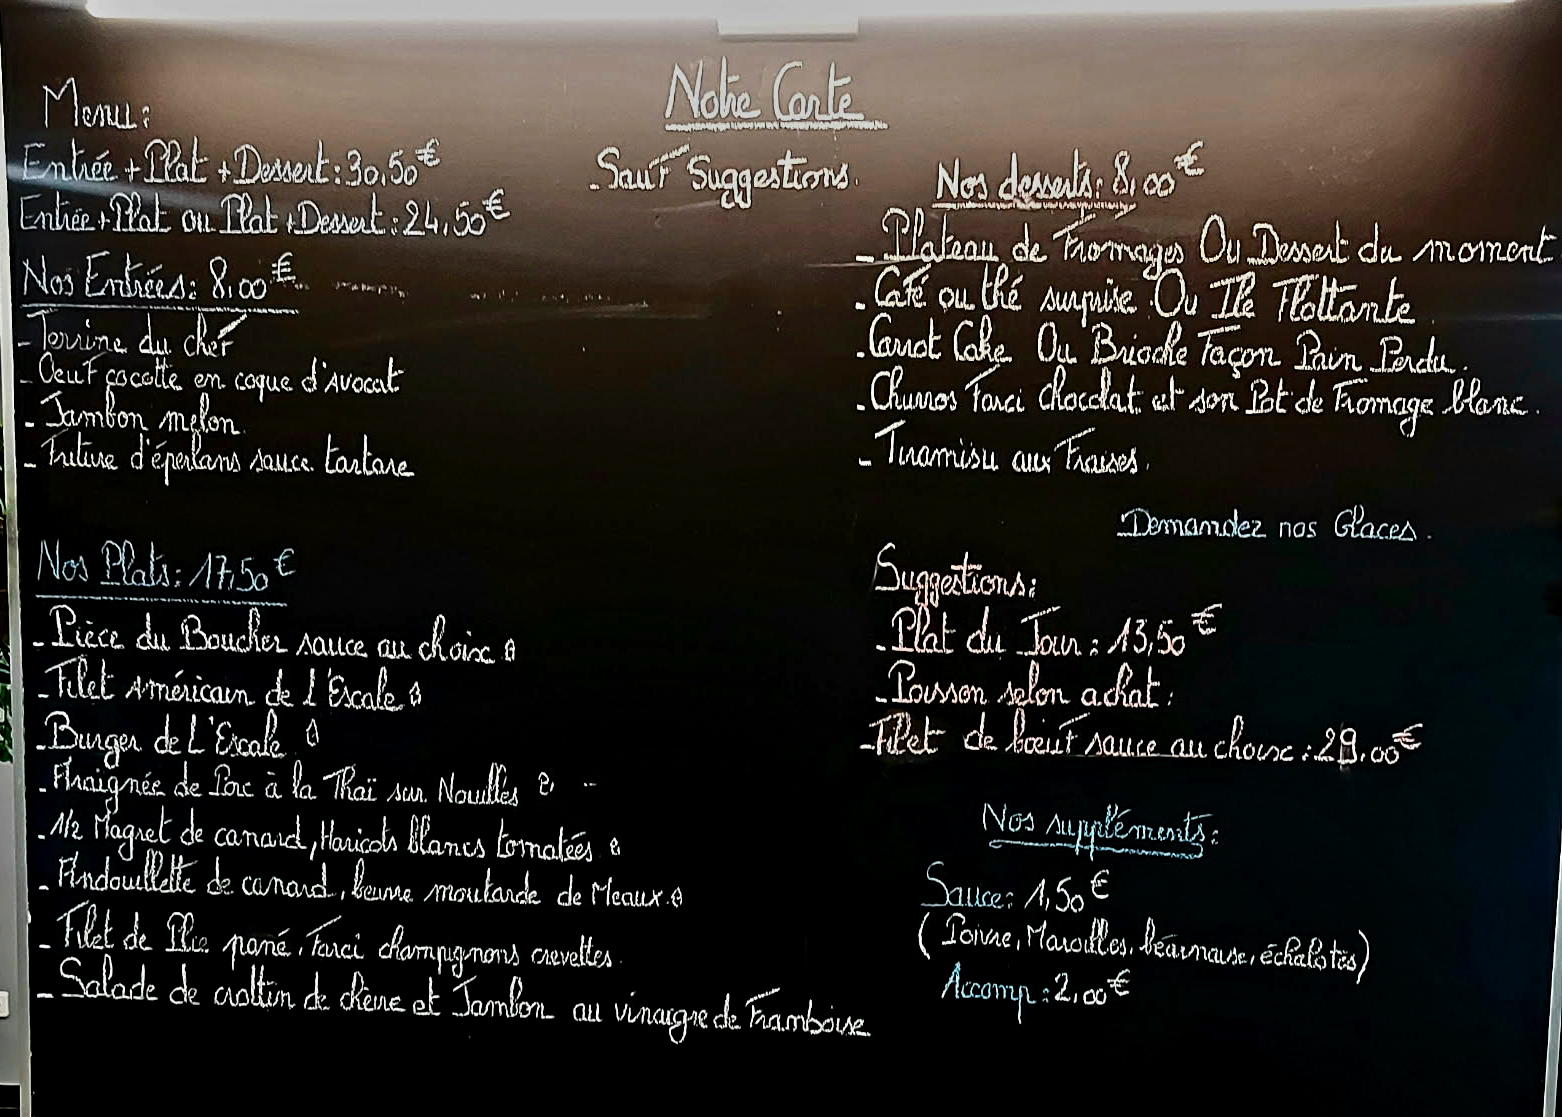 Notre Carte
Menu:
Entrée + Plat + Dessert: 30,50€
Entrée + Plat ou Plat + Dessert: 24,50€
- Sauf Suggestions.
Nos Entrées: 8,00€
- Terrine du chef
- Oeuf cocotte en coque d'avocat
- Jambon melon
- Friture d'éperlans sauce tartare
Nos Plats: 17,50€
- Pièce du Boucher sauce au choix
- Filet Américain de l'Escale
- Burger de L'Escale
- Araignée de Porc à la Thaï sur Nouilles
- 1/2 Magret de canard, Haricots blancs tomatées
- Andouillette de canard, beurre moutarde de Meaux.
- Filet de Plie pané, Farci champignons crevettes.
- Salade de crottin de chèvre et Jambon au vinaigre de Framboise
Nos desserts: 8,00€
- Plateau de Fromages Ou Dessert du moment
- Café ou thé surprise Ou Ile Flottante
- Carrot Cake Ou Brioche Façon Pain Perdu.
- Churros Farci chocolat et son Pot de Fromage blanc.
- Tiramisu aux Fraises.
Demandez nos Glaces.
Suggestions:
- Plat du Jour: 13,50€
- Poisson selon achat:
- Filet de boeuf sauce au choix: 29,00€
Nos suppléments:
Sauce: 1,50€
(Poivre, Maroilles, béarnaise, échalotes)
Accomp: 2,00€